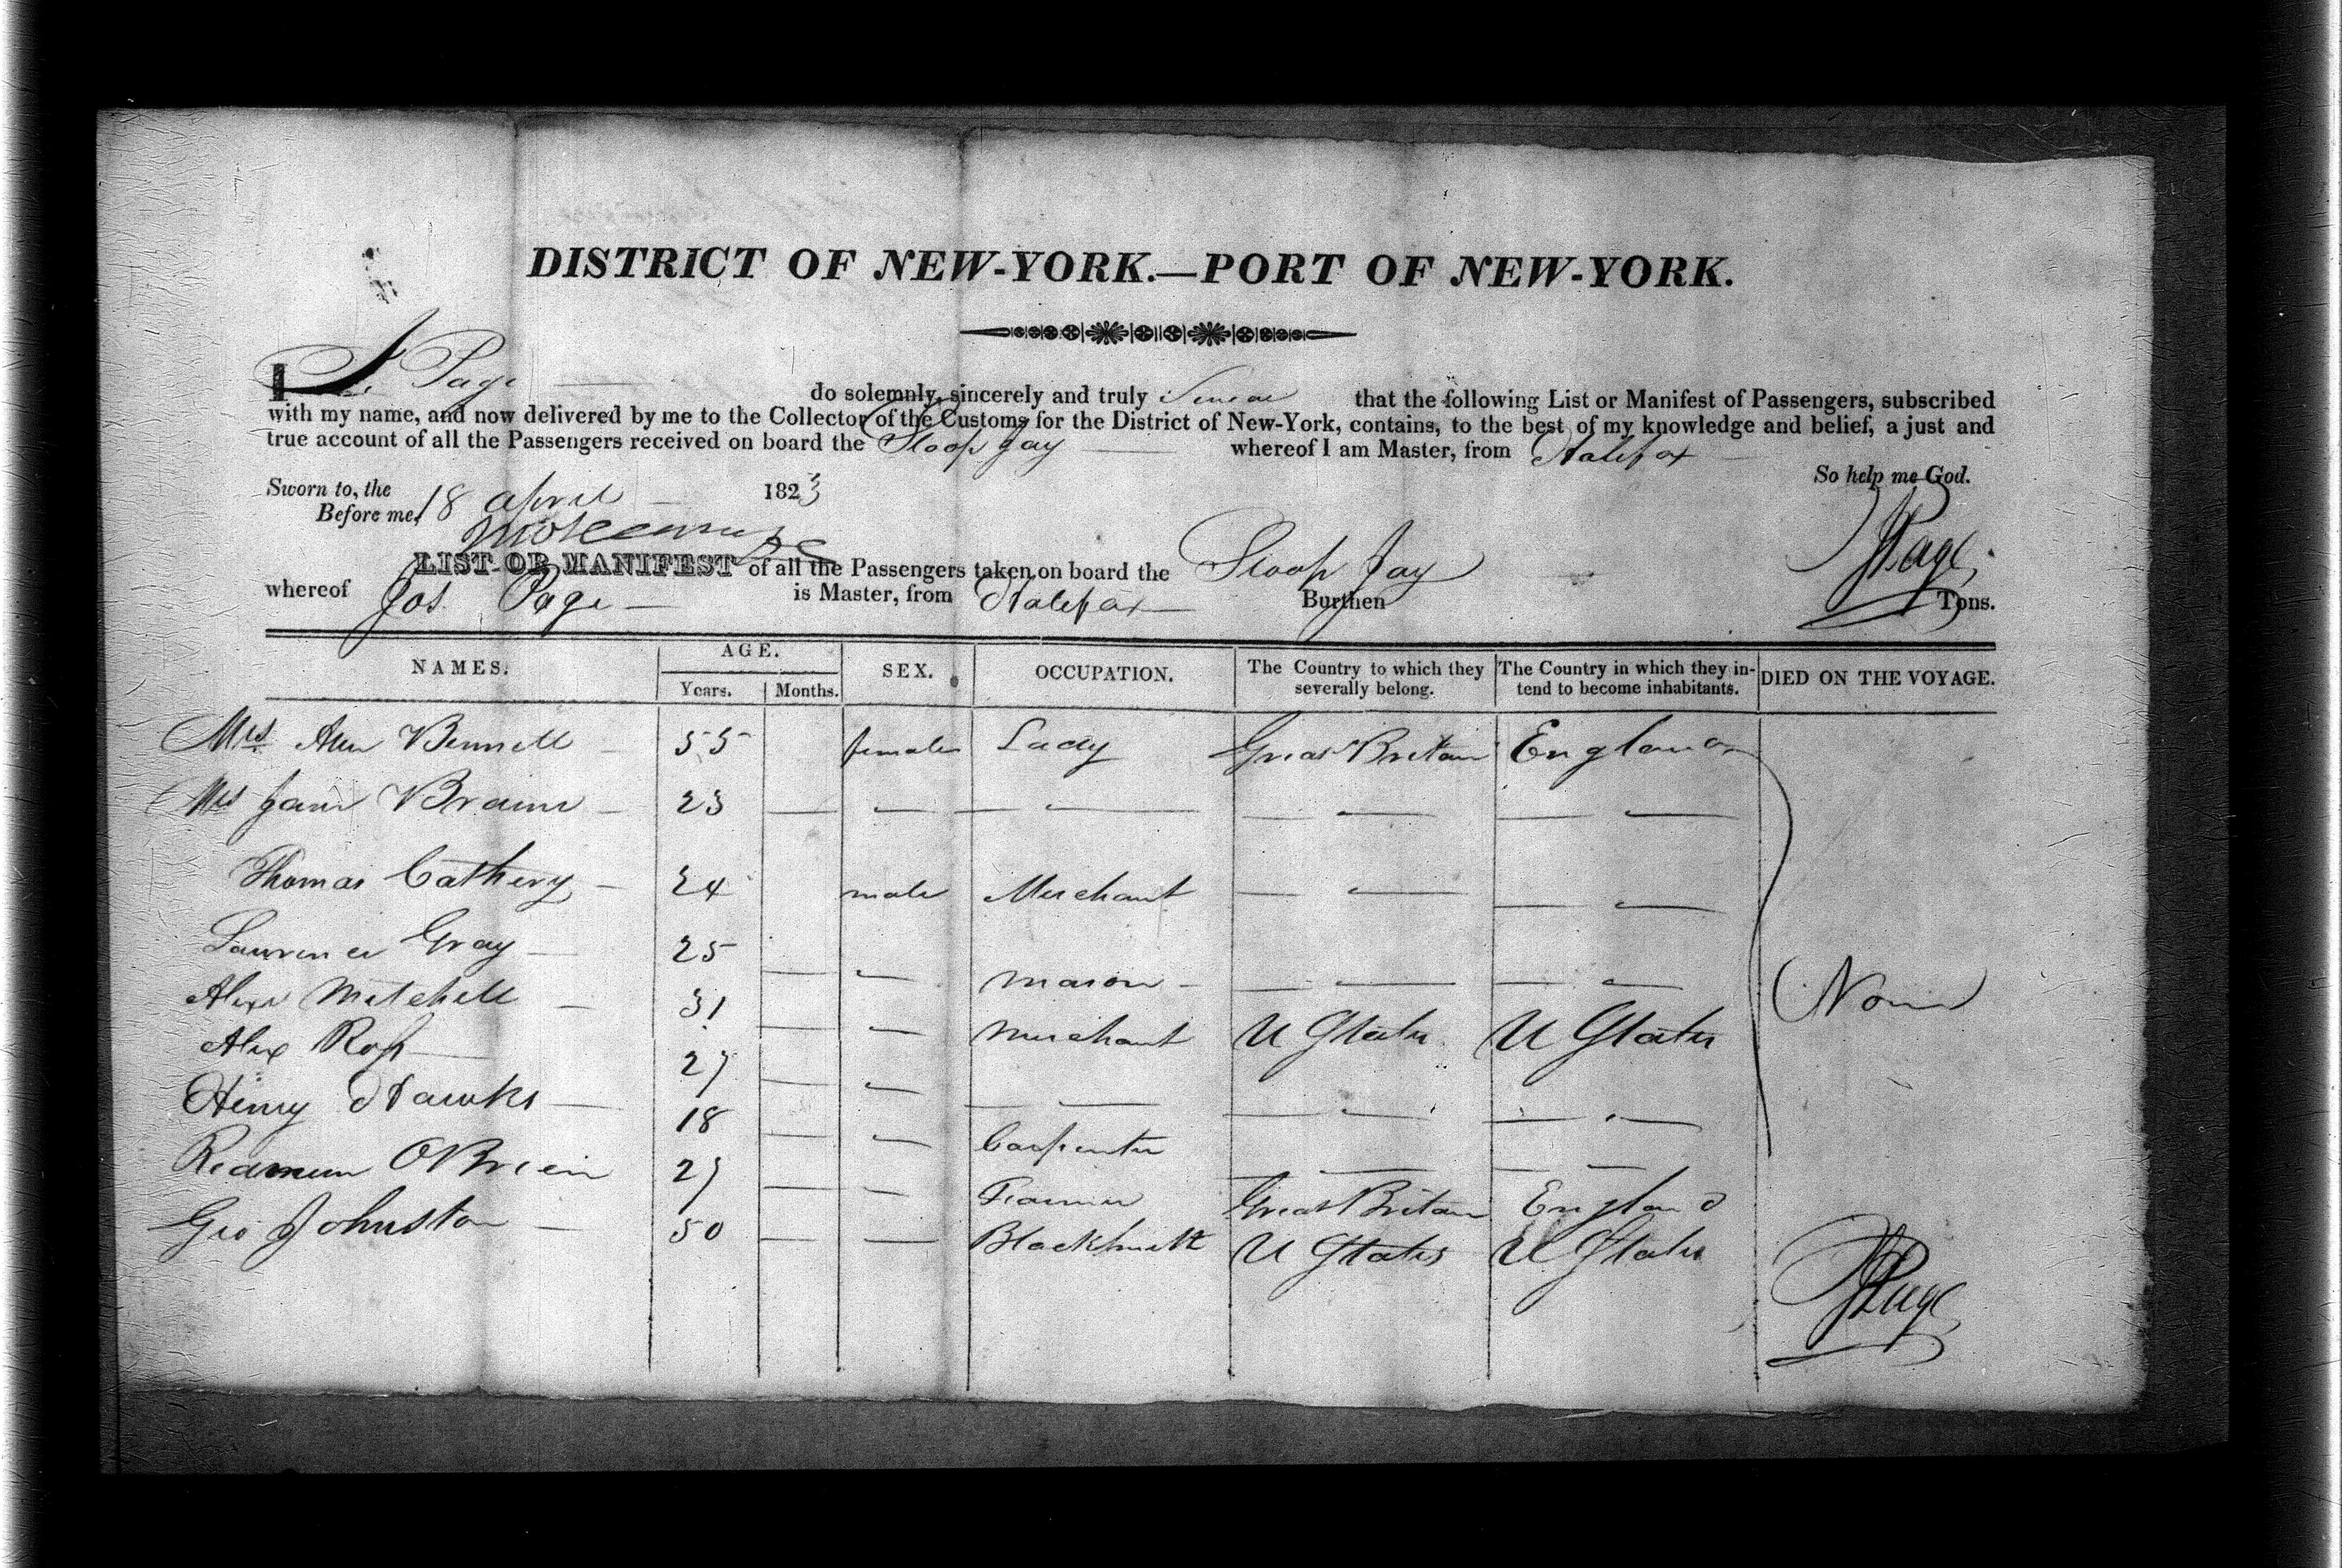 DISTRICT OF NEW-YORK.—PORT OF NEW-YORK.
I Page do solemnly, sincerely and truly Swear that the following List or Manifest of Passengers, subscribed
with my name, and now delivered by me to the Collector of the Customs for the District of New-York, contains, to the best of my knowledge and belief, a just and
true account of all the Passengers received on board the Sloop Jay whereof I am Master, from Halifax
So help me God.
Sworn to, the 18 april 1823
Before me,
JPage
LIST OR MANIFEST of all the Passengers taken on board the Sloop Jay
whereof Jos Page is Master, from Halifax Burthen Tons.
NAMES. AGE. Years. Months. SEX. OCCUPATION. The Country to which they severally belong. The Country in which they intend to become inhabitants. DIED ON THE VOYAGE.
Mrs Ann Bennell 55 female Lady Great Britain England
Mrs Jane Braine 23 — — — — —
Thomas Cathery 24 male Merchant — —
Laurence Gray 25 — — mason — —
Alexr Mitchell 31 — — merchant U States U States
Alex Ross 27 — — — — —
Henry Hawks 18 — — Carpenter — —
OBrien 27 — — Farmer Great Britain England
Geo Johnston 50 — — Blacksmith U States U States
None
JPage